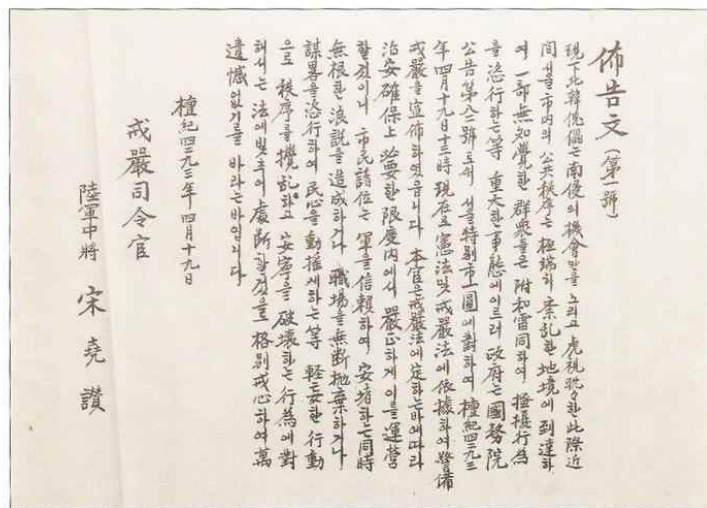 佈告文 (第一號)
現下北韓傀儡는 南侵의 機會만을 노리고 虎視眈々한 此際 近
間 서울市內의 公共秩序는 極端히 紊乱한 地境에 到達하
여 一部 無知覺한 群衆들은 附和雷同하여 搔擾行為
를 恣行하는等 重大한 事態에이르러 政府는 國務院
公告 第八二號로서 서울特別市一圓에對하여 檀紀四二九三
年 四月十九日十三時現在로 憲法및 戒嚴法에依據하여 警備
戒嚴을 宣佈하였읍니다 本官은 戒嚴法에定하는바에따라
治安確保上 必要한 限度內에서 嚴正하게 이를 運營
할것이니 市民諸位는 軍을信賴하여 安堵하는同時
無根한 浪說을 造成하거나 職場을無断抛棄하거나
謀畧을恣行하여 民心을 動搖케하는等 輕妄한 行動
으로 秩序를 攪乱하고 安寧을 破壞하는 行為에 對
해서는 法에빛추어 處断할것을 格別戒心하여 萬
遺憾없기를 바라는바입니다
檀紀四二九三年 四月十九日
戒嚴司令官
陸軍中將 宋堯讚